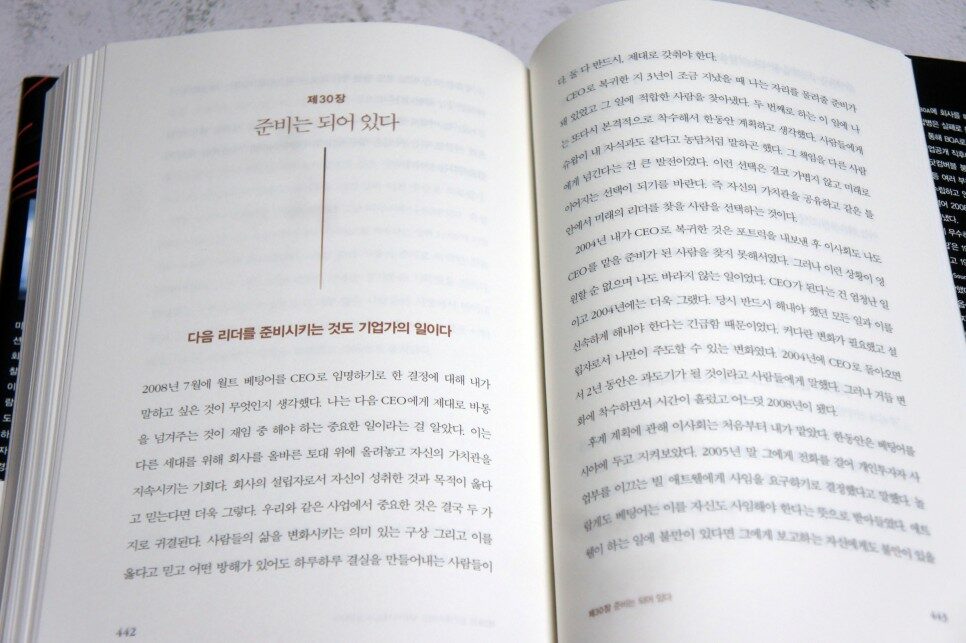 제30장
준비는 되어 있다
다음 리더를 준비시키는 것도 기업가의 일이다
2008년 7월에 월트 베팅어를 CEO로 임명하기로 한 결정에 대해 내가
말하고 싶은 것이 무엇인지 생각했다. 나는 다음 CEO에게 제대로 바통
을 넘겨주는 것이 재임 중 해야 하는 중요한 일이라는 걸 알았다. 이는
다른 세대를 위해 회사를 올바른 토대 위에 올려놓고 자신의 가치관을
지속시키는 기회다. 회사의 설립자로서 자신이 성취한 것과 목적이 옳다
고 믿는다면 더욱 그렇다. 우리와 같은 사업에서 중요한 것은 결국 두 가
지로 귀결된다. 사람들의 삶을 변화시키는 의미 있는 구상 그리고 이를
옳다고 믿고 어떤 방해가 있어도 하루하루 결실을 만들어내는 사람들이
442
다. 둘 다 반드시, 제대로 갖춰야 한다.
CEO로 복귀한 지 3년이 조금 지났을 때 나는 자리를 물려줄 준비가
돼 있었고 그 일에 적합한 사람을 찾아냈다. 두 번째로 하는 이 일에 나
는 또다시 본격적으로 착수해서 한동안 계획하고 생각했다. 사람들에게
슈왑이 내 자식과도 같다고 농담처럼 말하곤 했다. 그 책임을 다른 사람
에게 넘긴다는 건 큰 발전이었다. 이런 선택은 결코 가볍지 않고 미래로
이어지는 선택이 되기를 바란다. 즉 자신의 가치관을 공유하고 같은 틀
안에서 미래의 리더를 찾을 사람을 선택하는 것이다.
2004년 내가 CEO로 복귀한 것은 포트럭을 내보낸 후 이사회도 나도
CEO를 맡을 준비가 된 사람을 찾지 못해서였다. 그러나 이런 상황이 영
원할 순 없으며 나도 바라지 않는 일이었다. CEO가 된다는 건 엄청난 일
이고 2004년에는 더욱 그랬다. 당시 반드시 해내야 했던 모든 일과 이를
신속하게 해내야 한다는 긴급함 때문이었다. 커다란 변화가 필요했고 설
립자로서 나만이 주도할 수 있는 변화였다. 2004년에 CEO로 돌아오면
서 2년 동안은 과도기가 될 것이라고 사람들에게 말했다. 그러나 거듭 변
화에 착수하면서 시간이 흘렀고 어느덧 2008년이 됐다.
후계 계획에 관해 이사회는 처음부터 내가 맡았다. 한동안은 베팅어를
시야에 두고 지켜보았다. 2005년 말 그에게 전화를 걸어 개인투자자 사
업부를 이끄는 빌 애트웰에게 사임을 요구하기로 결정했다고 말했다. 놀
랍게도 베팅어는 이를 자신도 사임해야 한다는 뜻으로 받아들였다. 애트
웰이 하는 일에 불만이 있다면 그에게 보고하는 자신에게도 불만이 있을
제30장 준비는 되어 있다
443